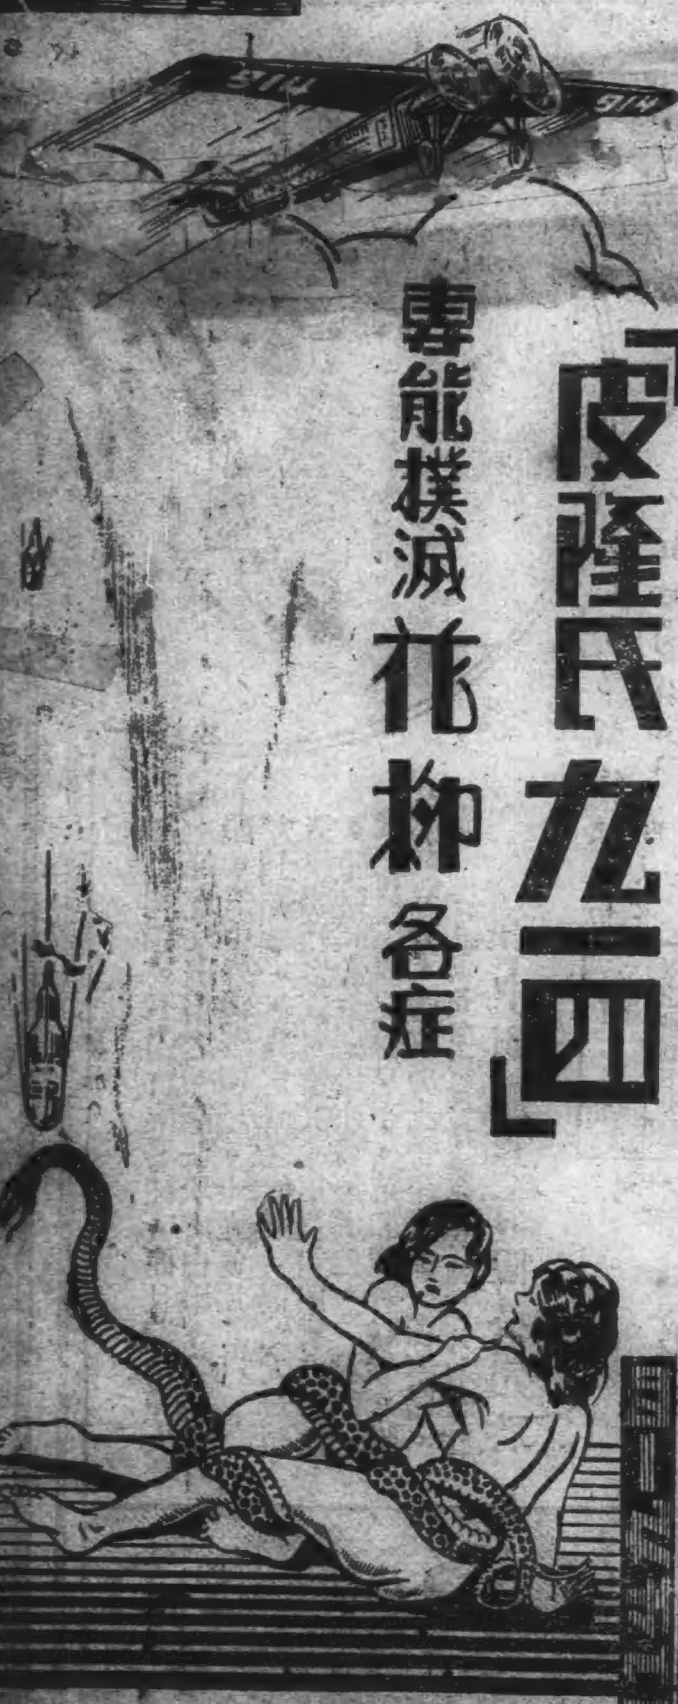 「皮隆氏九一四」
專能撲滅花柳各症
914
914